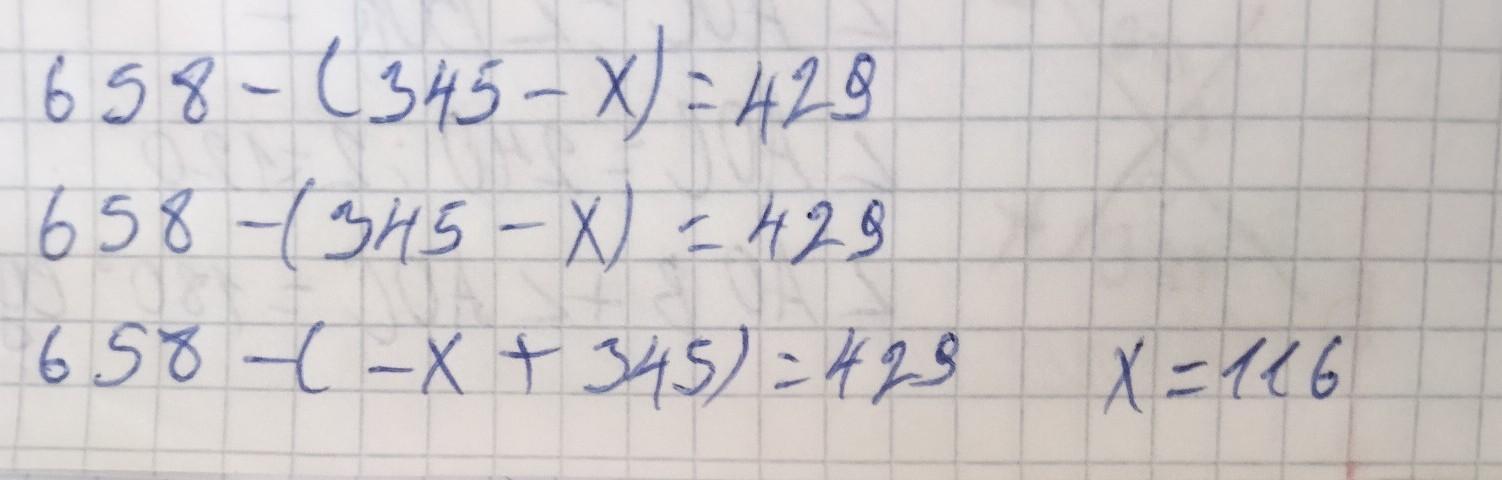 658-(345-x)=429
658-(345-x)=429
658-(-x+345)=429 x=116